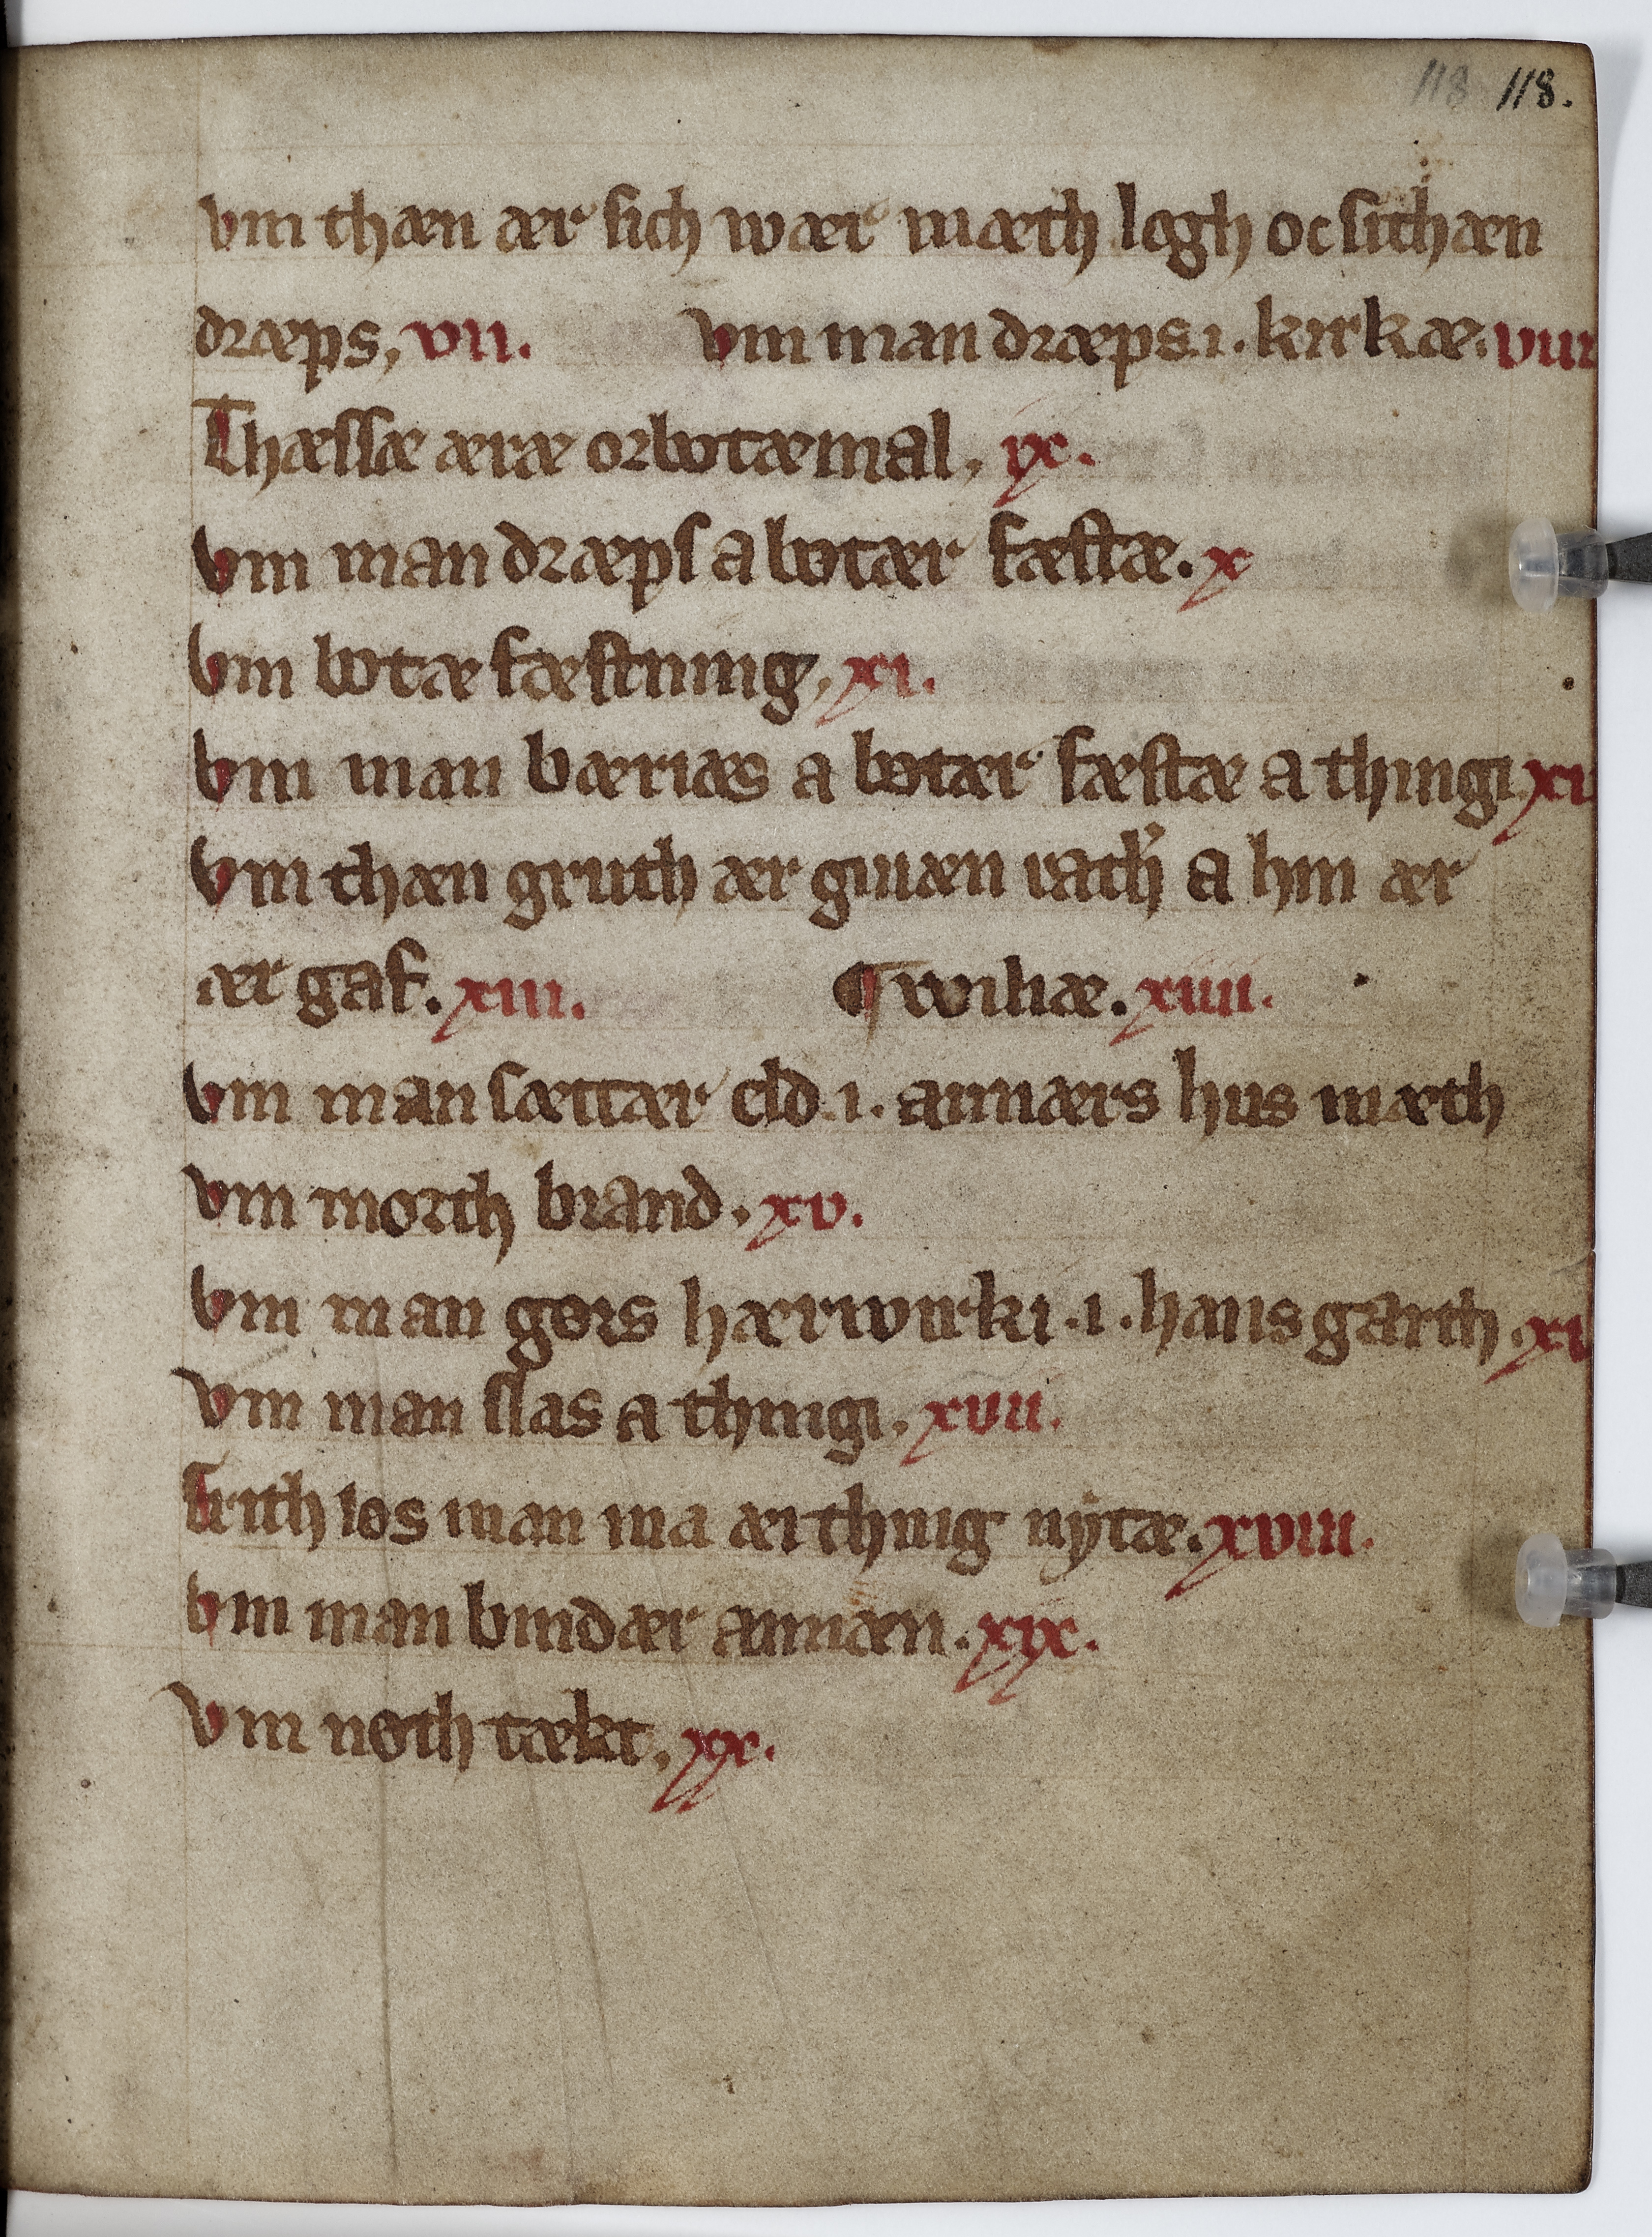 118 118.
vm thæn ær sich wær mæth logh oc sithæn
dræps, vii. vm man dræps .i. kirkæ. viii
Thæssæ æræ orbotæmal. ix.
vm man dræps a botær fæstæ. x
vm botæ fæstning, xi.
vm man bæriæs a botær fæstæ a thingi xi
vm thæn gruth ær giuæn uath a hin ær
ær gaf. xiii. ¶ wiliæ. xiiii.
vm man sættær eld .i. annærs hus mæth
vm morth brand. xv.
vm man gørs hærwirki .i. hans garth. xv
vm man slas a thingi. xvii.
frith løs man ma æi thing nytæ. xviii.
vm man bindær annæn. xix.
vm nøth tækt, xx.